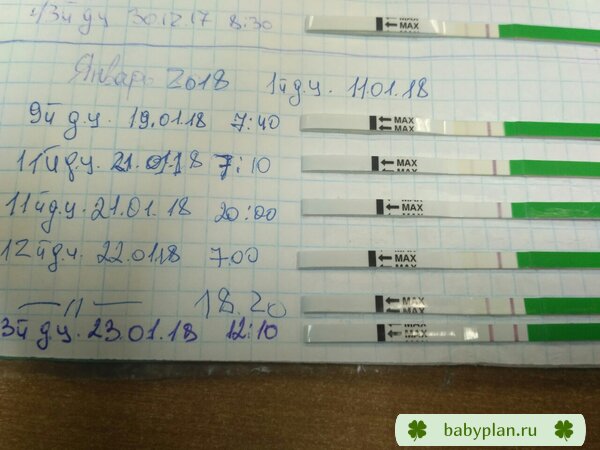 13й д.ц 30.12.17 8:30 MAX MAX
Январь 2018 1й д.ц. 11.01.18
9й д.ц. 19.01.18 7:40 MAX MAX
11й д.ц. 21.01.18 7:10 MAX MAX
11й д.ц. 21.01.18 20:00 MAX
12й д.ц. 22.01.18 7.00 MAX MAX
— 11 — 18.20 MAX
3й д.ц. 23.01.18 12:10 MAX MAX
babyplan.ru